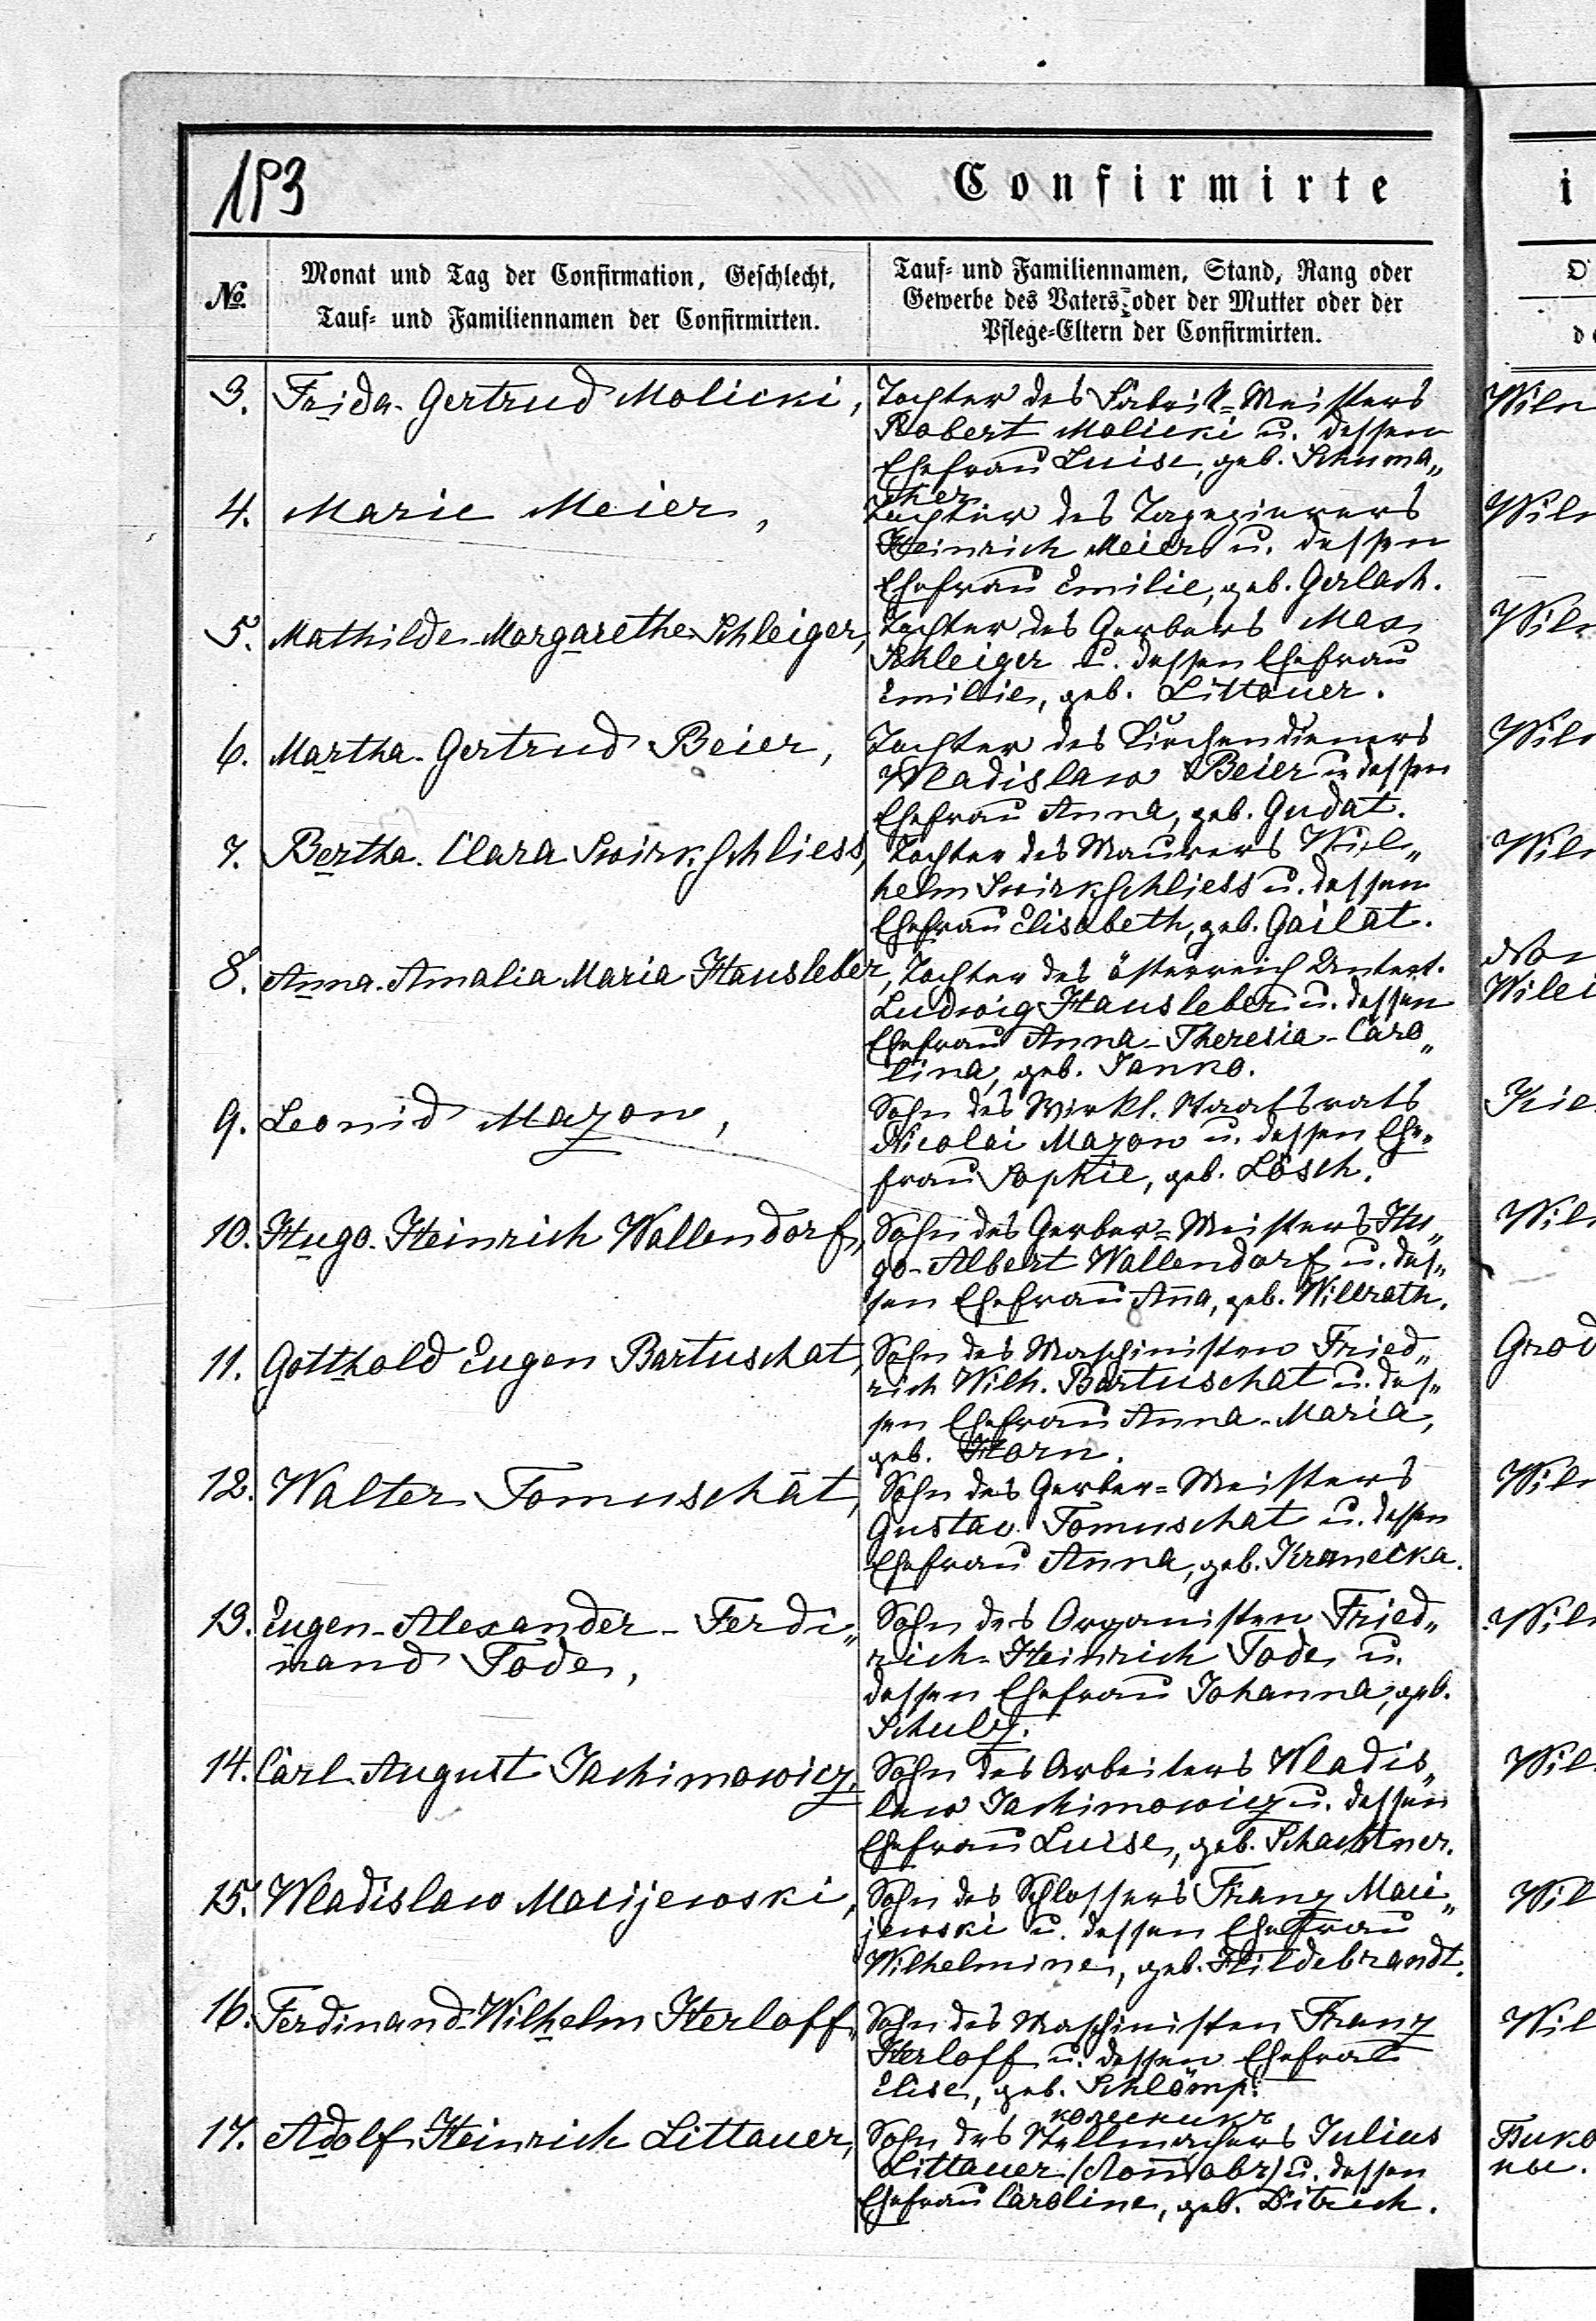 183
Confirmirte
i
№
Monat und Tag der Confirmation, Geschlecht,
Tauf- und Familiennamen der Confirmirten.
Tauf- und Familiennamen, Stand, Rang oder
Gewerbe des Vaters oder der Mutter oder der
Pflege-Eltern der Confirmirten.
O
3. Frida-Gertrud Molicki,
Tochter des Fabrik-Meisters
Robert Molicki u. dessen
Ehefrau Luise, geb. Schuma„
cher.
Wiln
4. Marie Meier,
Tochter des Tapezierers
Heinrich Meier u. dessen
Ehefrau Emilie, geb. Gerlach.
Wiln
5. Mathilde-Margarethe Schleiger,
Tochter des Gerbers Max
Schleiger u. dessen Ehefrau
Emilie, geb. Littauer.
Wiln
6. Martha-Gertrud Beier,
Tochter des Kirchendieners
Wladislaw Beier u. dessen
Ehefrau Anna, geb. Gudat.
Wiln
7. Bertha-Clara Swirkschliess,
Tochter des Maurers Wil„
helm Swirkschliess u. dessen
Ehefrau Elisabeth, geb. Gailat.
Wiln
8. Anna-Amalia-Maria Hausleber,
Tochter des österreich Untert.
Ludwig Hausleber u. dessen
Ehefrau Anna-Theresia-Caro„
lina, geb. Janko.
Wilei
9. Leonid Mazon,
Sohn des Wirkl. Staatsrats
Nicolai Mazon u. dessen Ehe„
frau Sophie, geb. Lösch.
Kie
10. Hugo-Heinrich Wallendorf,
Sohn des Gerber-Meisters Hu„
go-Albert Wallendorf u. des„
sen Ehefrau Anna, geb. Willrath.
Wiln
11. Gotthold Eugen Bartuschat,
Sohn des Maschinisten Fried„
rich Wilh. Bartuschat u. des„
sen Ehefrau Anna-Maria,
geb. Horn.
Grod
12. Walter Tomuschat,
Sohn des Gerber-Meisters
Gustav Tomuschat u. dessen
Ehefrau Anna, geb. Kranecka.
Wiln
13. Eugen-Alexander-Ferdi„
nand Tode,
Sohn des Organisten Fried„
rich-Heinrich Tode u.
dessen Ehefrau Johanna, geb.
Schulz.
Wiln
14. Carl-August Jachimowicz,
Sohn des Arbeiters Wladis„
law Jachimowicz u. dessen
Ehefrau Luise, geb. Schachtner.
Wil
15. Wladislaw Macijewski,
Sohn des Schlossers Franz Maci„
jewski u. dessen Ehefrau
Wilhelmine, geb. Hildebrandt.
Wil
16. Ferdinand-Wilhelm Herloff,
Sohn des Maschinisten Franz
Herloff u. dessen Ehefrau
Elise, geb. Schlömp.
Wil
17. Adolf Heinrich Littauer,
колесникъ
Sohn des Stellmachers Julius
Littauer u. dessen
Ehefrau Caroline, geb. Ditrich.